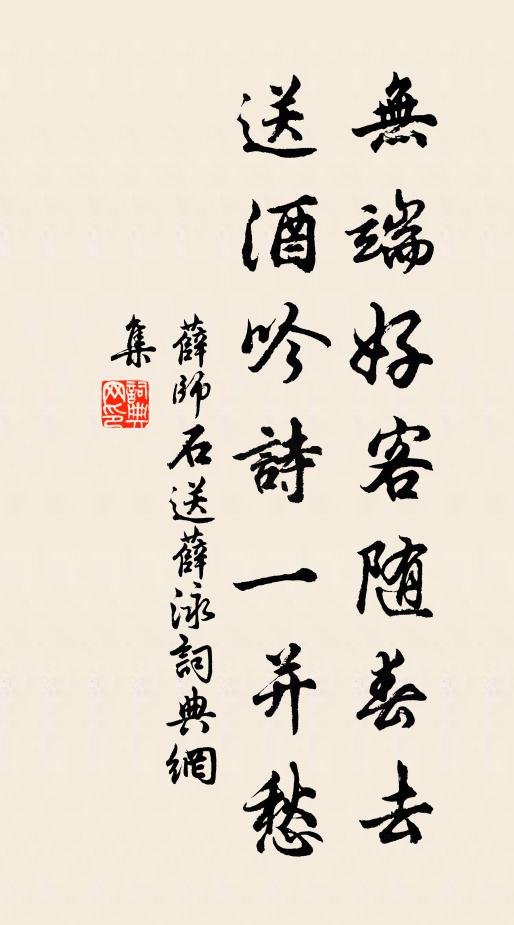 無端好客随春去
送酒吟詩一并愁
薛師石送薛泳詞典網
集
詞典網印